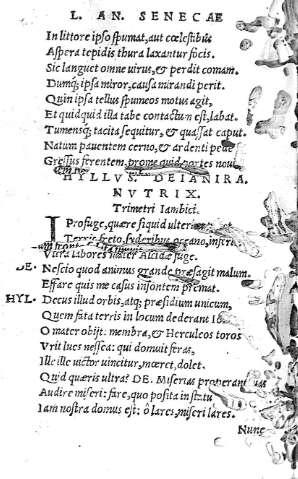 L. AN. SENECAE
In littore ipso spumat, aut cœlestibus
Aspera tepidis thura laxantur focis.
Sic languet omne virus, & perdit comam.
Dumq; ipsa miror, causa mirandi perit.
Quin ipsa tellus spumeos motus agit,
Et quidquid illa tabe contactum est, labat.
Tumensq; tacita sequitur, & quassat caput.
Natum pauentem cerno, & ardenti pede
Gressus ferentem, prome quid portes noui
HYLLVS. DEIANIRA.
NVTRIX.
Trimetri Iambici.
I Profuge, quære siquid ulterius
Terris freto, syderibus, oceano, inferis
Vltra labores mater Alcidæ fuge.
DE. Nescio quod animus grande præsagit malum.
Effare quis me casus insontem premat.
HYL. Decus illud orbis, atq; præsidium unicum,
Quem fata terris in locum dederant
O mater obijt. membra, & Herculeos toros
Vrit lues nessea: qui domuit feras,
Ille ille victor uincitur, mœret, dolet.
Quid quæris ultra? DE. Miserias
Audire miseri: fare, quo posita in statu
Iam nostra domus est: ô lares, miseri lares.
Nunc